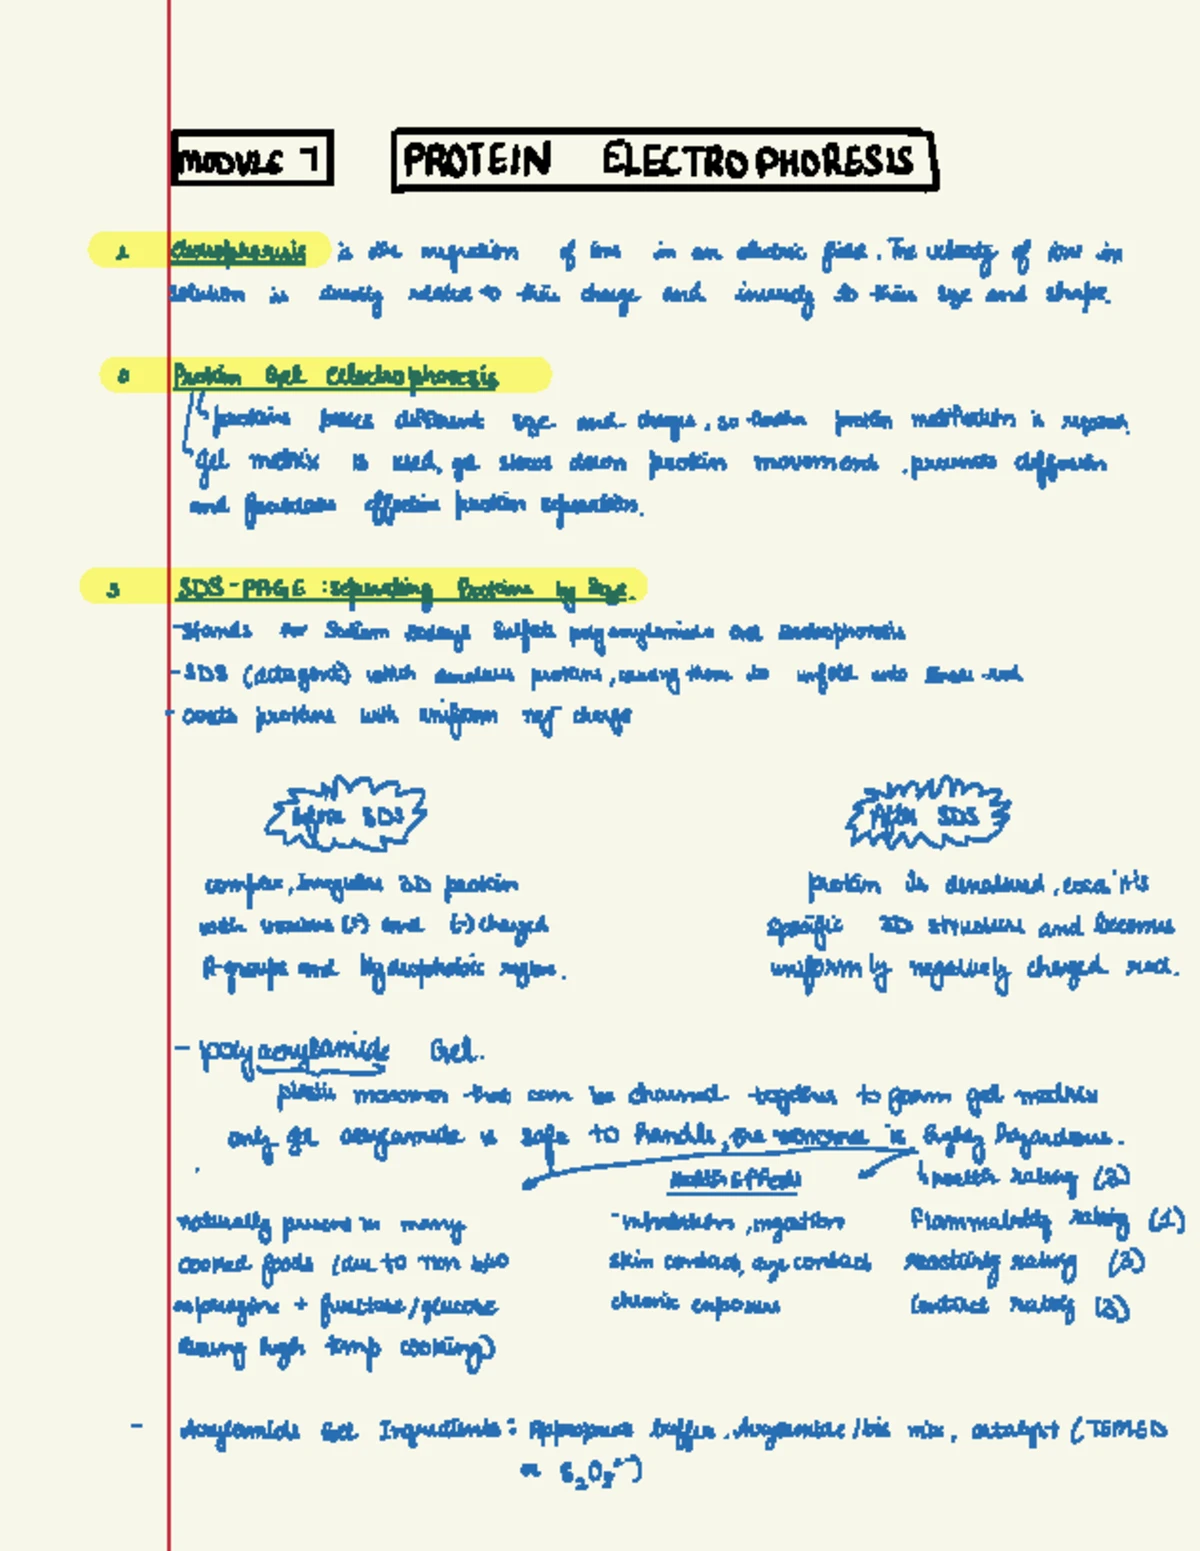 MODULE 7 PROTEIN ELECTROPHORESIS
Electrophoresis is the migration of ions in an electric field. The velocity of ion in
solution is directly related to their charge and inversely to their size and shape.
Protein Gel Electrophoresis
proteins different size and charge, so protein is
gel matrix is used, gel slows down protein movement, prevents diffusion
and facilitates effective protein separation.
3 SDS-PAGE: separating Proteins by Size.
- stands for Sodium dodecyl Sulfate polyacrylamide Gel Electrophoresis
- SDS (detergent) which proteins, causing them to unfold into linear rod
- coats proteins with uniform neg charge
Before SDS
After SDS
complex, Irregular 3D protein
with various (+) and (-) charged
R-groups and Hydrophobic region.
protein is denatured, it's
specific 3D structure and becomes
uniformly negatively charged rod.
- polyacrylamide Gel.
plastic monomer that can be chained together to form gel matrix
only gel acrylamide is safe to handle, the monomer is highly hazardous.
Health Effects
health rating (3)
naturally present in many
cooked foods (due to rxn b/w
asparagine + fructose/glucose
during high temp cooking)
- inhalation, ingestion
skin contact, eye contact
chronic exposure
Flammability rating (1)
reactivity rating (3)
Contact rating (3)
- Acrylamide Gel Ingredients: Appropriate buffer, Acrylamide/bis mix, catalyst (TEMED